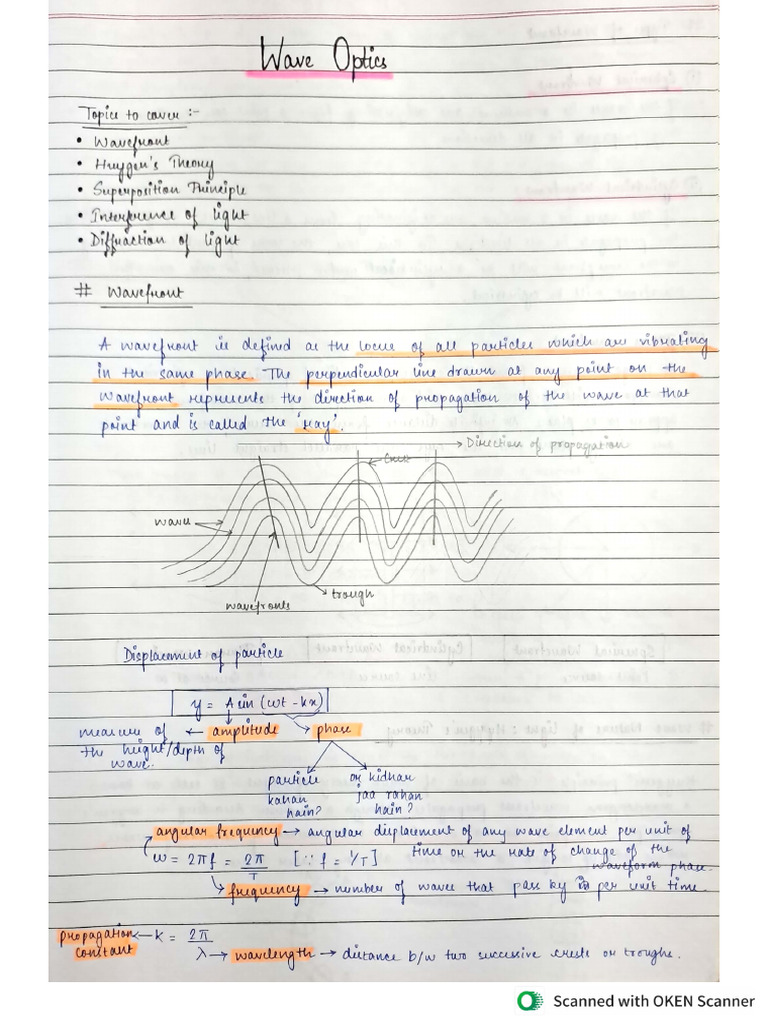 Wave Optics
Topics to cover :-
• Wavefront
• Huygen's Theory
• Superposition Principle
• Interference of light
• Diffraction of light
# Wavefront
A wavefront is defined as the locus of all particles which are vibrating
in the same phase. The perpendicular line drawn at any point on the
wavefront represents the direction of propagation of the wave at that
point and is called the 'ray'.
→ Direction of propagation
Crest
wave
wavefronts
trough
Displacement of particle
y = A sin (ωt - kx)
measure of ← amplitude
the height/depth of
wave.
phase
particle
kahan
hain?
or kidhar
jaa rahan
hain?
angular frequency → angular displacement of any wave element per unit of
time or the rate of change of the
waveform phase.
ω = 2πf = 2π/T [∵ f = 1/T]
frequency → number of waves that pass by in per unit time.
propagation constant ← k = 2π/λ
λ → wavelength → distance b/w two successive crests or troughs.
Scanned with OKEN Scanner